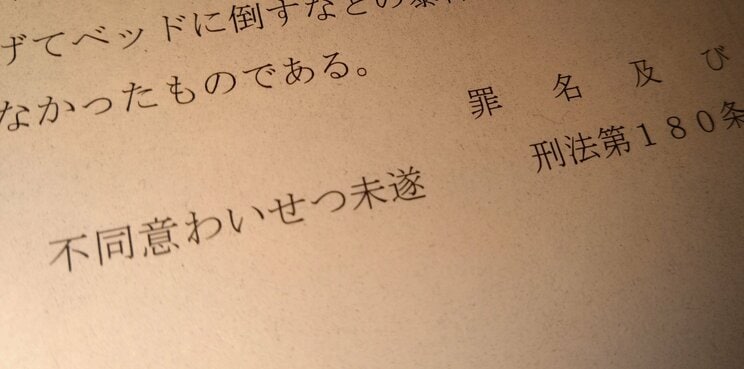 げてベッドに倒すなどの暴
なかったものである。
罪名及び
不同意わいせつ未遂 刑法第180条